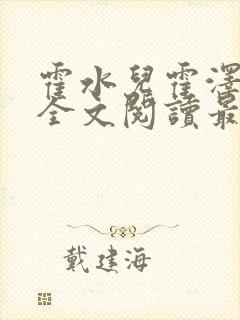 霍水兒霍澤
全文閱讀最
戴建海